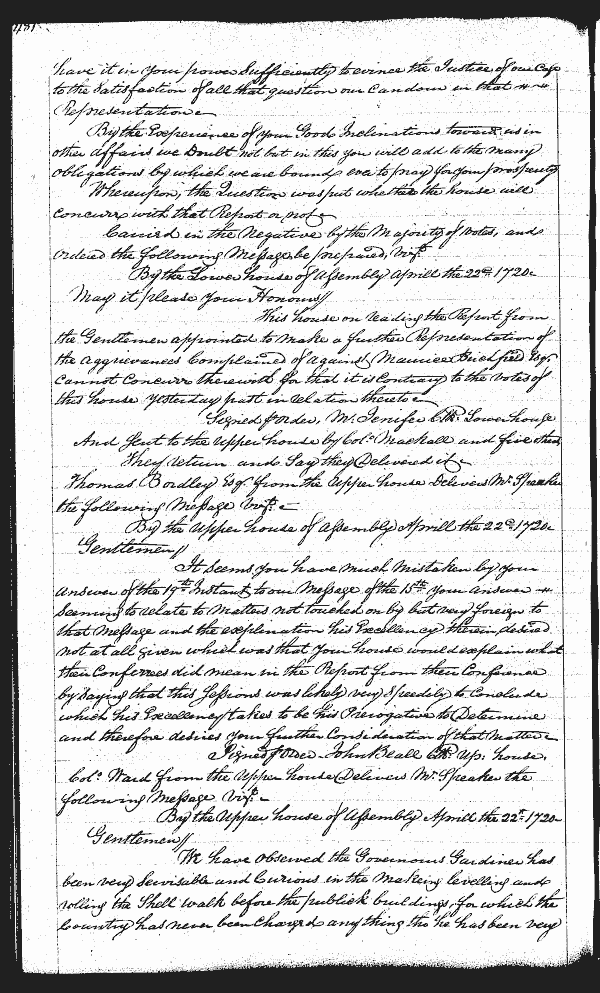 431.
have it in your power Sufficiently to evince the Justice of our Case
to the Satisfaction of all that question our Candour in that
Representation
By the Experience of your Good Inclinations toward us in
other affairs we Doubt not but in this you will add to the many
obligations by which we are bound ever to pray for your prosperity
Whereupon, the Question was put whether the house will
Concurr with that Report or not
Carried in the Negative by the Majority of Votes, and
ordered the following Message be prepared, Vizt.
By the Lower house of Assembly Aprill the 22d 1720
May it please your Honours//
This house on reading the Report from
the Gentlemen appointed to make a further Representation of
the aggrievances Complained of against Maurice Birchfield Esqr.
Cannot Concurr therewith for that it is Contrary to the Votes of
this house Yesterday past in relation thereto
Signed p order, M. Jenifer Clk. Lower house
And Sent to the Upper house by Colo. Mackall and five others
They return and Say they Delivered it
Thomas Bordley Esqr. from the Upper house Delivers Mr. Speaker
the following Message Vizt.
By the Upper house of Assembly Aprill the 22d. 1720
Gentlemen//
It seems you have much Mistaken by your
answer of the 19th Instant, to our Message of the 15th your answer
Seeming to relate to Matters not touched on by but very foreign to
that Message and the explanation his Excellency therein desired
not at all given which was that your house would explain what
their Conferrees did mean in the Report from their Conference
by Saying that this Sessions was likely very Speedily to Conclude
which his Excellency takes to be his Prerogative to Determine
and therefore desires your further Consideration of that Matter
Signed p Order John Beall Clk. Up. house.
Colo. Ward from the Upper house Delivers Mr. Speaker the
following Message Vizt.
By the Upper house of Assembly Aprill the 22d. 1720
Gentlemen//
We have observed the Governours Gardiner has
been very Servisable and Curious in the Making levelling and
rolling the Shell walk before the publick buildings, for which the
Country has never been Charged any thing tho he has been very